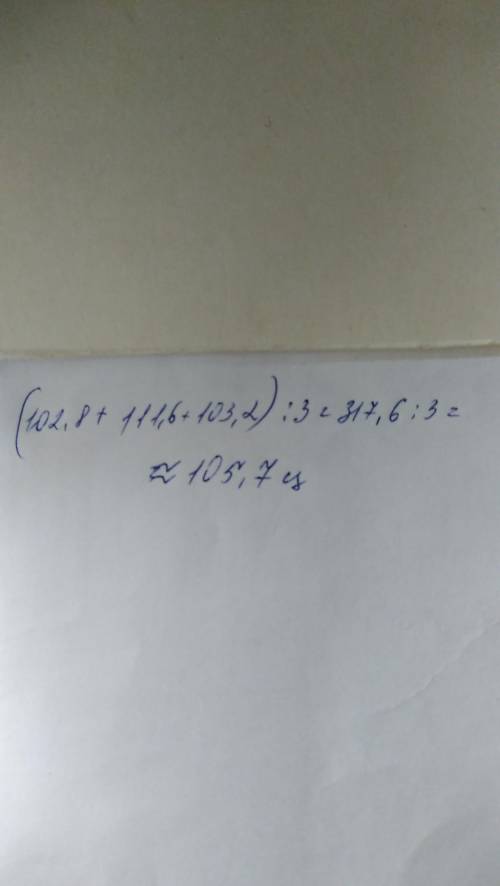 (102,8+ 111,6+103,2):3= 317,6:3=
≈ 105,7 ц